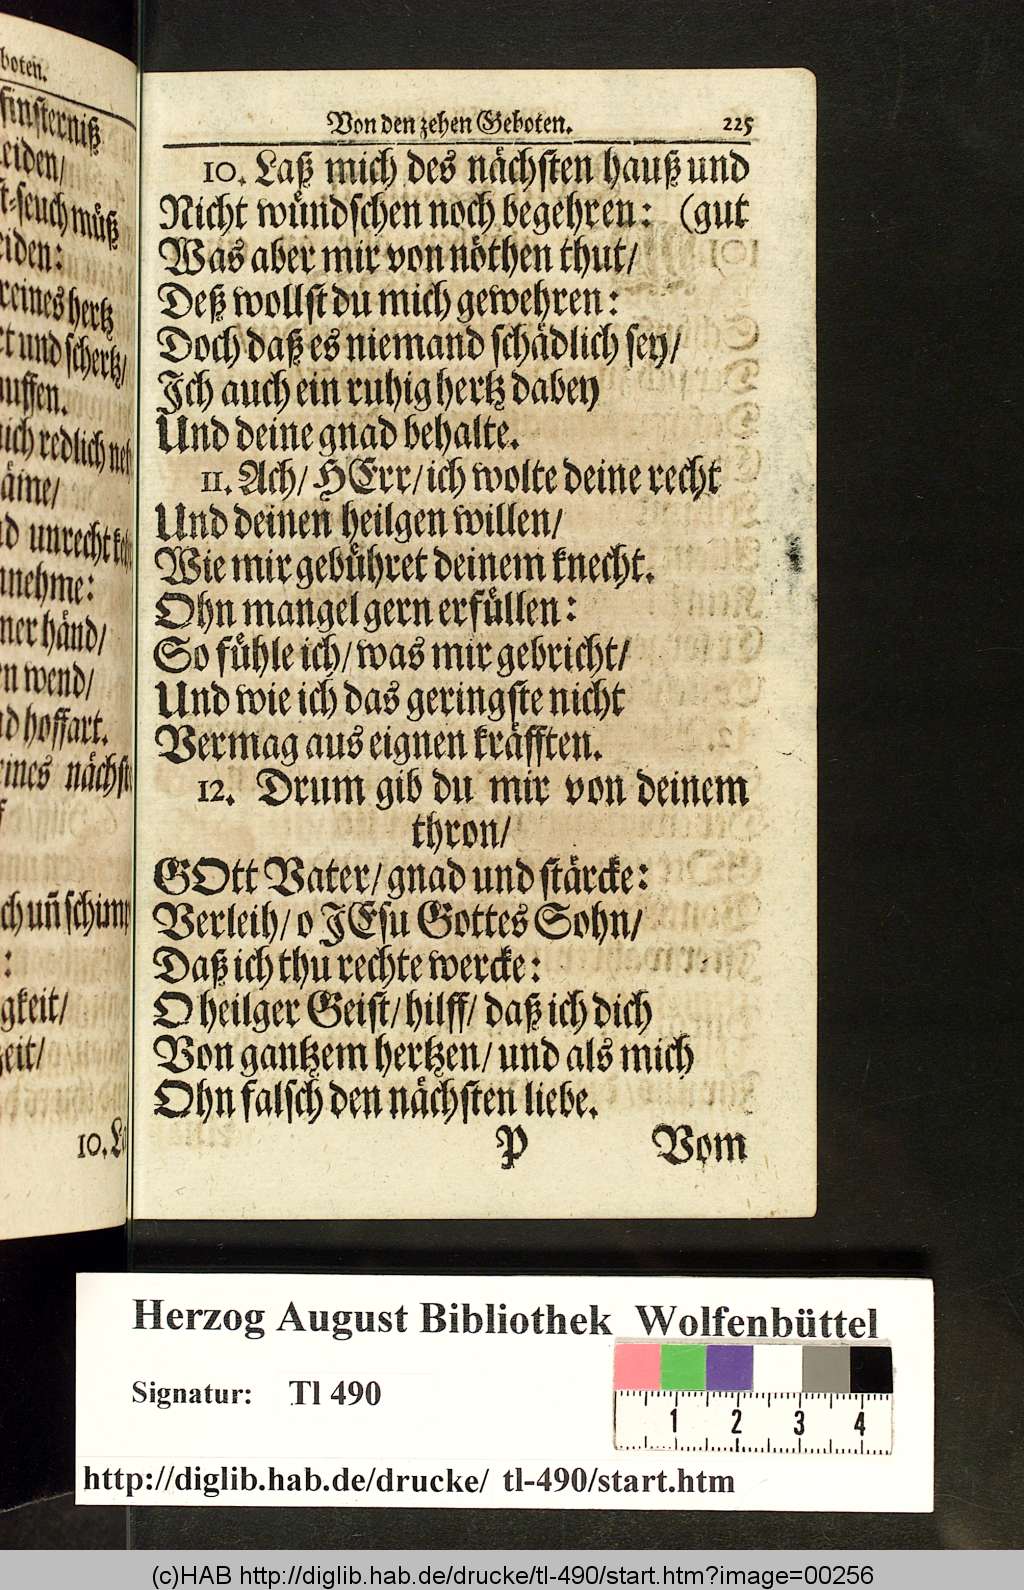 boten.
finsterniß
eiden/
t-seuch müß
eiden:
reines hertz
t und schertz/
uffen.
uch redlich neh
äme/
d unrecht
nehme:
ner händ/
n wend/
d hoffart.
eines nächst
ch uñ schim
:
gkeit/
zeit/
10. L
Von den zehen Geboten. 225
10. Laß mich des nächsten hauß und
Nicht wündschen noch begehren: (gut
Was aber mir von nöthen thut/
Deß wollst du mich gewehren:
Doch daß es niemand schädlich sey/
Ich auch ein ruhig hertz dabey
Und deine gnad behalte.
11. Ach/ HErr/ ich wolte deine recht
Und deinen heilgen willen/
Wie mir gebühret deinem knecht.
Ohn mangel gern erfüllen:
So fühle ich/ was mir gebricht/
Und wie ich das geringste nicht
Vermag aus eignen kräfften.
12. Drum gib du mir von deinem
thron/
GOtt Vater/ gnad und stärcke:
Verleih/ o JEsu Gottes Sohn/
Daß ich thu rechte wercke:
O heilger Geist/ hilff/ daß ich dich
Von gantzem hertzen/ und als mich
Ohn falsch den nächsten liebe.
P Vom
Herzog August Bibliothek Wolfenbüttel
Signatur: Tl 490
1 2 3 4
http://diglib.hab.de/drucke/ tl-490/start.htm
(c)HAB http://diglib.hab.de/drucke/tl-490/start.htm?image=00256